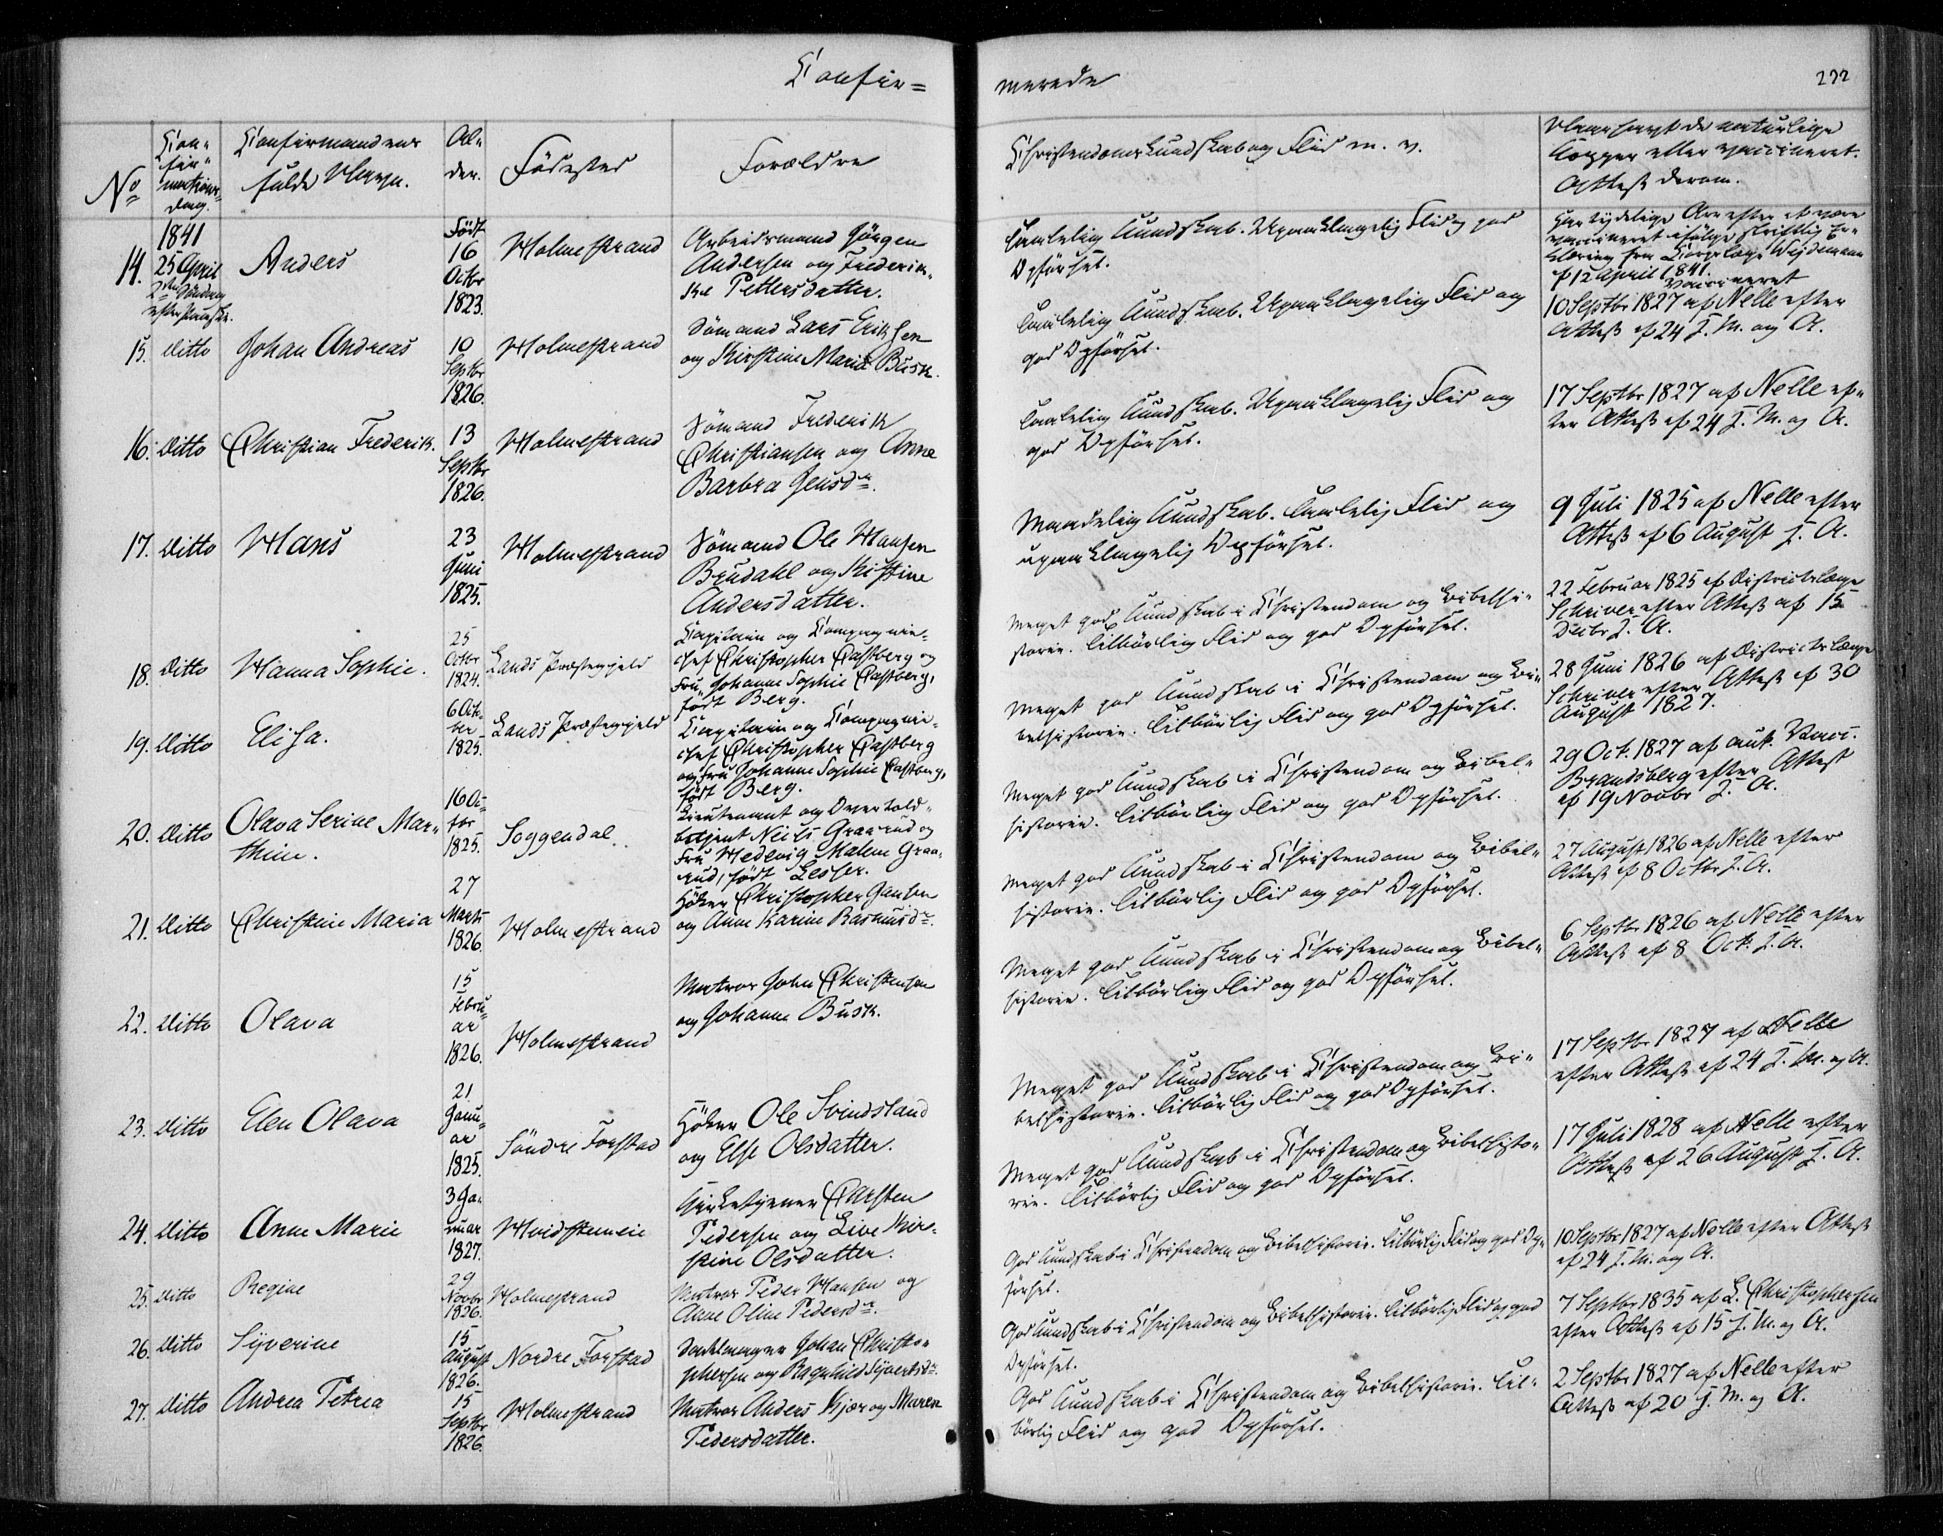 Confir=
merede
232
No
Con-
fir-
mations-
dag.
Confirmandens
fulde Navn.
Al-
der.
Födested
Forældre
Christendomskundskab og Flid m. v.
Naar havt de naturlige
Kopper eller vaccineret.
Attest derom.
1841
14. 25 April
2den Söndag
efter Paaske.
Anders
Født
16
Octbr
1823.
Holmestrand
Arbeidsmand Jörgen
Andersen og Frederik-
ke Pettersdatter.
Taalelig Kundskab. Upaaklagelig Flid og god
Opförsel.
Har tydelige Ar efter at være
vaccineret ifölge skriftlig Er-
klæring fra Corpslæge Wejdemann
af 12 April 1841.
15. Ditto
Johan Andreas
10
Septbr
1826.
Holmestrand
Sömand Lars Eriksen
og Kirstine Maria Busk.
Taalelig Kundskab. Upaaklagelig Flid og
god Opförsel.
Vaccineret
10 Septbr 1827 af Nelle efter
Attest af 24 s. M. og A.
16. Ditto
Christian Frederik.
13
Septbr
1826.
Holmestrand
Sömand Frederik
Christiansen og Anne
Barbra Jensdr.
Taalelig Kundskab. Upaaklagelig Flid og
god Opförsel.
17 Septbr 1827 af Nelle ef-
ter Attest af 24 s. M. og A.
17. Ditto
Hans
23
Juni
1825.
Holmestrand
Sömand Ole Hansen
Brudahl og Kistine
Andersdatter.
Maadelig Kundskab. Taalelig Flid og
upaaklagelig Opförsel.
9 Juli 1825 af Nelle efter
Attest af 6 August s. A.
18. Ditto
Hanna Sophie.
25
Octbr
1824.
Lands Præstegjeld
Capitain og Compagnie-
chef Christopher Castberg og
Fru Johanne Sophie Castberg,
født Berg.
Meget god Kundskab i Christendom og Bibelhi-
storie. Tilbörlig Flid og god Opförsel.
22 Februar 1825 af Districtslæge
Schriver efter Attest af 15
Decbr s. A.
19. Ditto
Elisa.
6 Oct-
br
1825.
Lands Præstegjeld
Capitain og Compagnie-
chef Christopher Castberg
og Fru Johanne Sophie Castberg,
født Berg.
Meget god Kundskab i Christendom og Bi-
belhistorie. Tilbörlig Flid og god Opförsel.
28 Juni 1826 af Districtslæge
Schriver efter Attest af 30
August 1827.
20. Ditto
Olava Serine Mar-
thine.
16
1825.
Soggendal.
Lieutenant og Overtold-
betjent Niels Graarud og
Fru Hedevig Malene Graa-
rud, født Lesser.
Meget god Kundskab i Christendom og Bibel-
historie. Tilbörlig Flid og god Opförsel.
29 Oct. 1827 af aut. Vacc.
Brandsberg efter Attest
af 19 Novbr s. A.
21. Ditto
Christine Maria
27
Marts
1826.
Holmestrand
Höker Christopher Jansen
og Anne Karine Rasmusdr.
Meget god Kundskab i Christendom og Bibel-
historie. Tilbörlig Flid og god Opförsel.
27 August 1826 af Nelle efter
Attest af 8 Octbr s. A.
22. Ditto
Olava
15
Febru-
ar
1826.
Holmestrand
Matros John Christensen
og Johanne Busk.
Meget god Kundskab i Christendom og Bibel-
historie. Tilbörlig Flid og god Opförsel.
6 Septbr 1826 af Nelle efter
Attest af 8 Oct. s. A.
23. Ditto
Elen Olava
21
Janu-
ar
1825.
Söndre Forstad
Höker Ole Svindsland
og Else Olsdatter.
Meget god Kundskab i Christendom og Bi-
belhistorie. Tilbörlig Flid og god Opförsel.
17 Septbr 1827 af Nelle
efter Attest af 24 s. M. og A.
24. Ditto
Anne Marie
3 Ja-
nuar
1827.
Hvidsteneie
Kirketjener Carsten
Pedersen og Live Kir-
stine Olsdatter.
Meget god Kundskab i Christendom og Bibelhisto-
rie. Tilbörlig Flid og god Opförsel.
17 Juli 1828 af Nelle efter
Attest af 26 August s. A.
25. Ditto
Regine
29
Novbr
1826.
Holmestrand
Matros Peder Hansen og
Anne Oline Pedersdr.
God Kundskab i Christendom og Bibelhistorie. Tilbörlig Flid og god Op-
försel.
10 Septbr 1827 af Nelle efter Attest
af 24 s. M. og A.
26. Ditto
Syverine
15
August
1826.
Nordre Forstad
Sadelmager Johan Christo-
phersen og Ragnhild Syvertsdr.
God Kundskab i Christendom og Bibelhistorie. Tilbörlig Flid og god
Opförsel.
7 Septbr 1835 af L. Christophersen
efter Attest af 15 s. M. og A.
27. Ditto
Andrea Petrea
15
Septbr
1826.
Holmestrand
Matros Anders Kjær og Maren
Pedersdatter.
God Kundskab i Christendom og Bibelhistorie. Til-
börlig Flid og god Opförsel.
2 Septbr 1827 af Nelle efter
Attest af 20 s. M. og A.